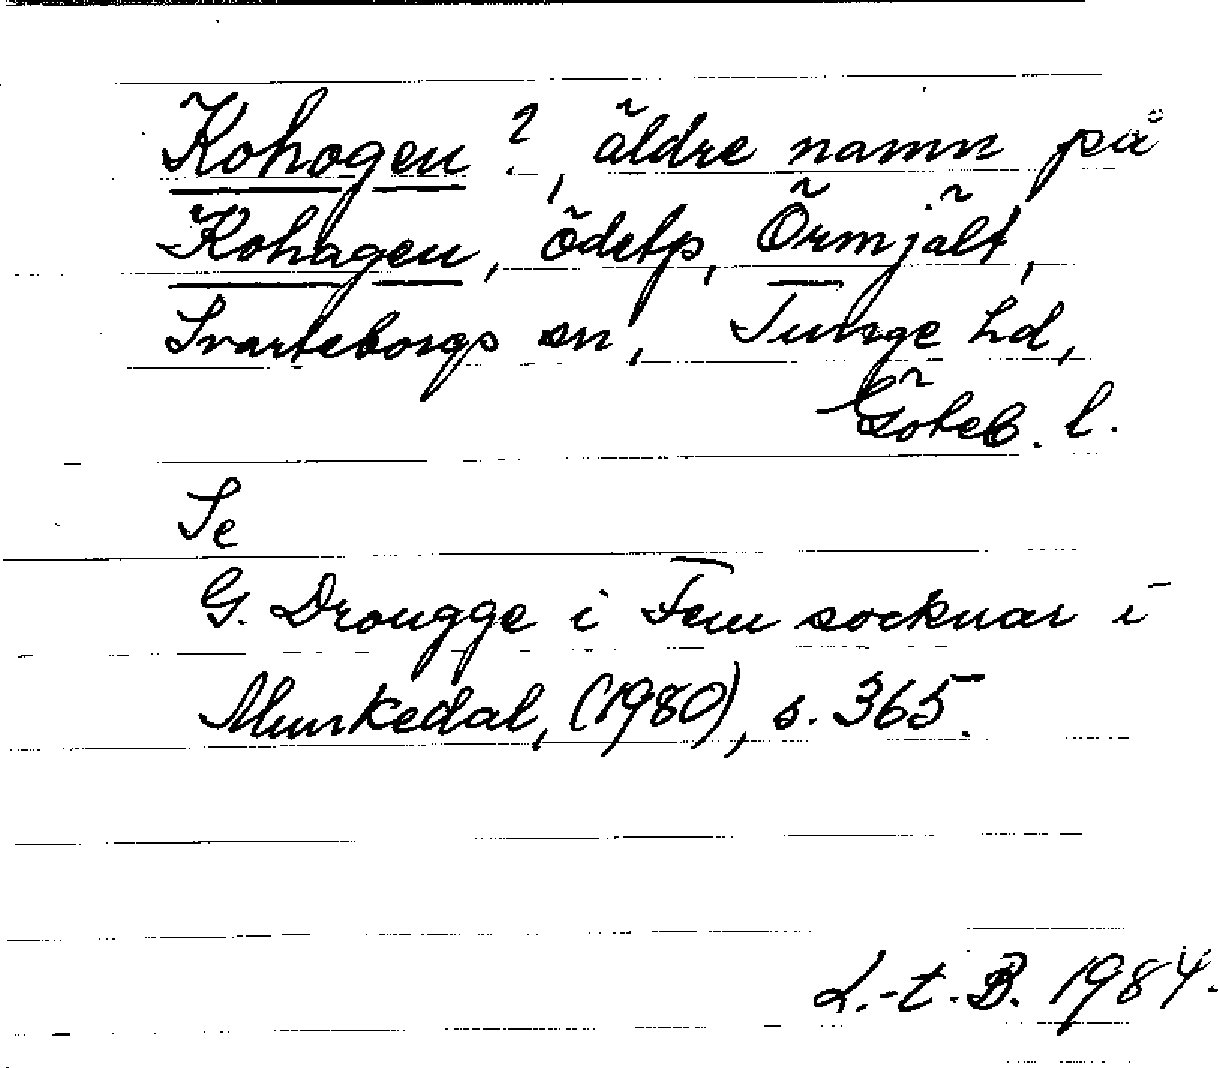 Kohogen ?, äldre namn på
Kohagen, ödetp, Örmjält,
Svarteborgs sn, Tunge hd,
Göteb. l.
Se
G. Drougge i Fem socknar i
Munkedal, (1980), s. 365.
L.-t. B. 1984.